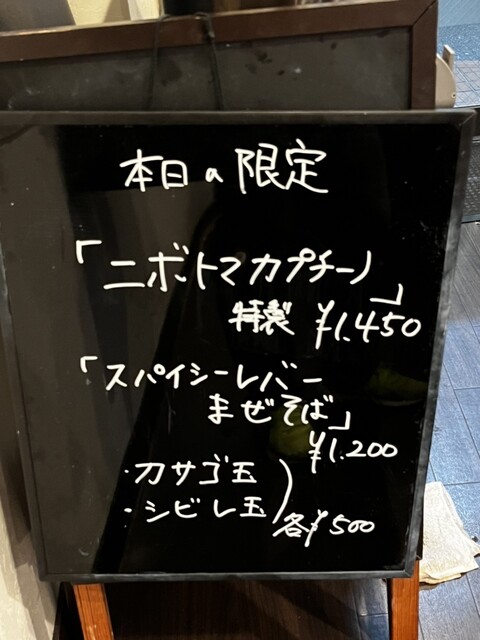 本日の限定
「ニボトマカプチーノ」
特製 ¥1.450
「スパイシーレバー
まぜそば」
¥1.200
・カサゴ玉
・シビレ玉
各¥500